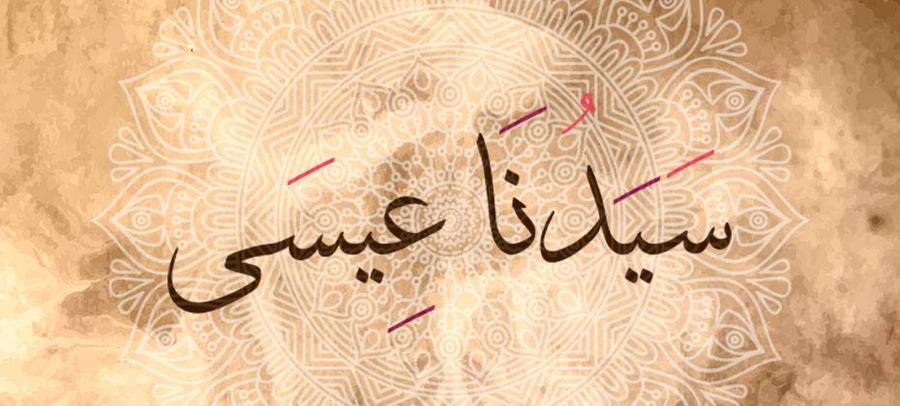 سَيَدُنَا عِيسَى